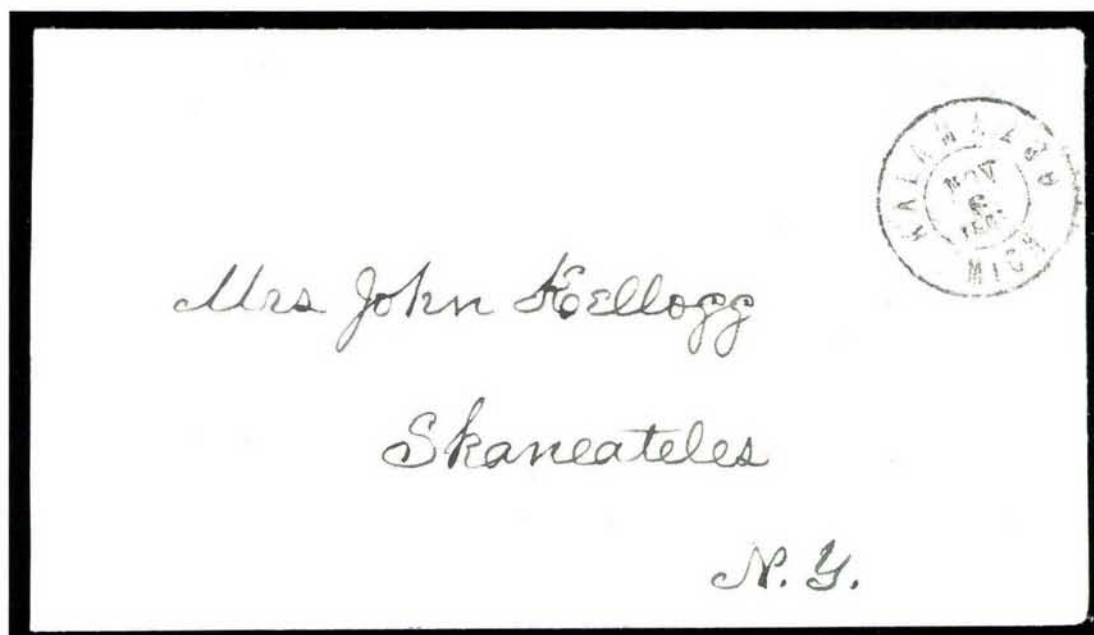 KALAMAZOO
MICH
NOV
6
Mrs John Kellogg
Skaneateles
N. Y.